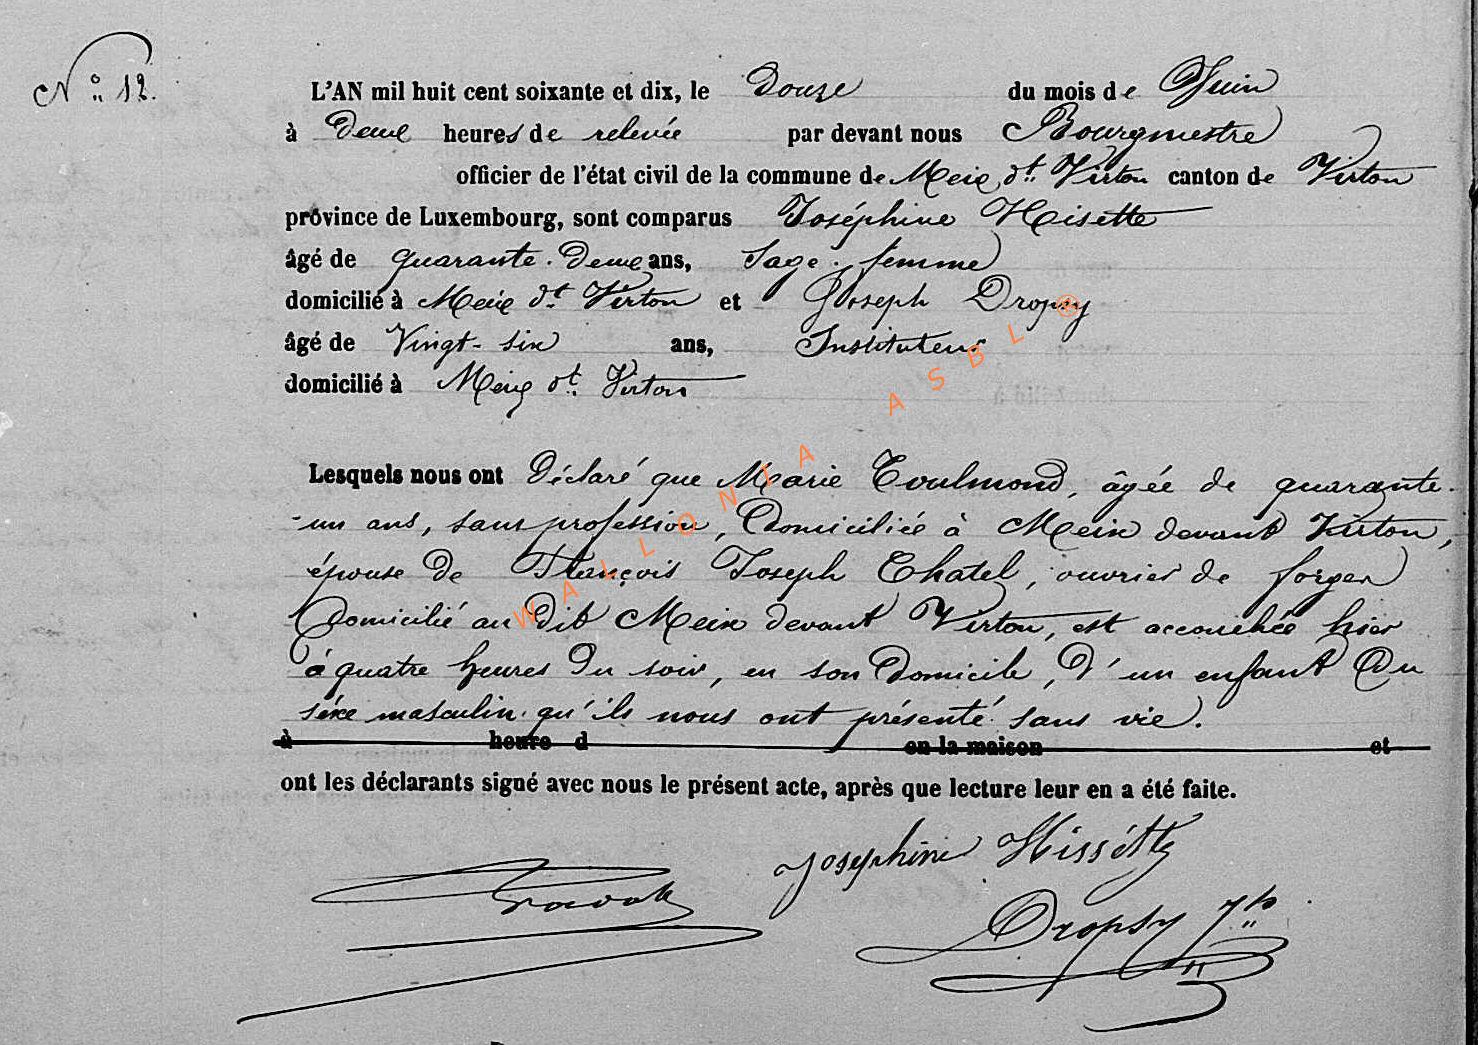 N° 12.
L'AN mil huit cent soixante et dix, le Douze du mois de Juin
à deux heures de relevée par devant nous Bourgmestre
officier de l'état civil de la commune de Meix dt Virton canton de Virton
province de Luxembourg, sont comparus Joséphine Hisette
âgé de quarante-deux ans, Sage-femme
domicilié à Meix dt Virton et Joseph Dropsy
âgé de Vingt-six ans, Instituteur
domicilié à Meix dt Virton
Lesquels nous ont déclaré que Marie Toulmond, âgée de quarante-
-un ans, sans profession, domiciliée à Meix devant Virton,
épouse de François Joseph Chatel, ouvrier de forges
domicilié au dit Meix devant Virton, est accouchée hier
à quatre heures du soir, en son domicile, d'un enfant du
sexe masculin qu'ils nous ont présenté sans vie.
à heure d en la maison et
ont les déclarants signé avec nous le présent acte, après que lecture leur en a été faite.
Joséphine Hissétte
Dropsy Jh
WALLONIA ASBL ®